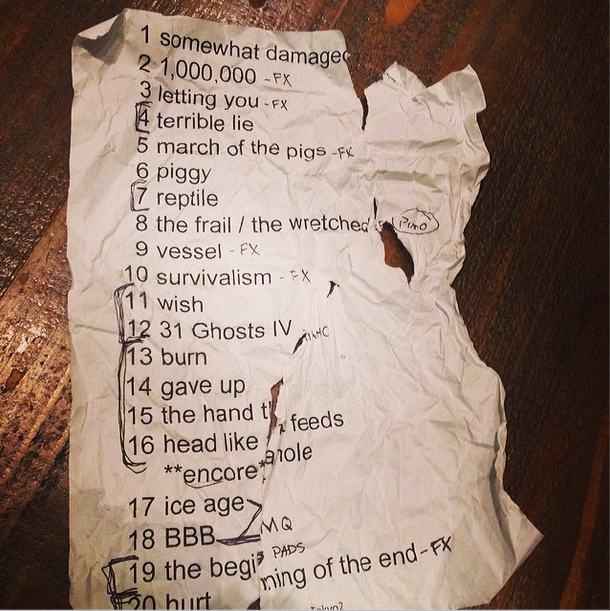 1 somewhat damaged
2 1,000,000 - FX
3 letting you - FX
4 terrible lie
5 march of the pigs - FX
6 piggy
7 reptile
8 the frail / the wretched
9 vessel - FX
10 survivalism - FX
11 wish
12 31 Ghosts IV
13 burn
14 gave up
15 the hand th feeds
16 head like a hole
**encore*
17 ice age
18 BBB MQ
PADS
19 the beginning of the end - FX
20 hurt